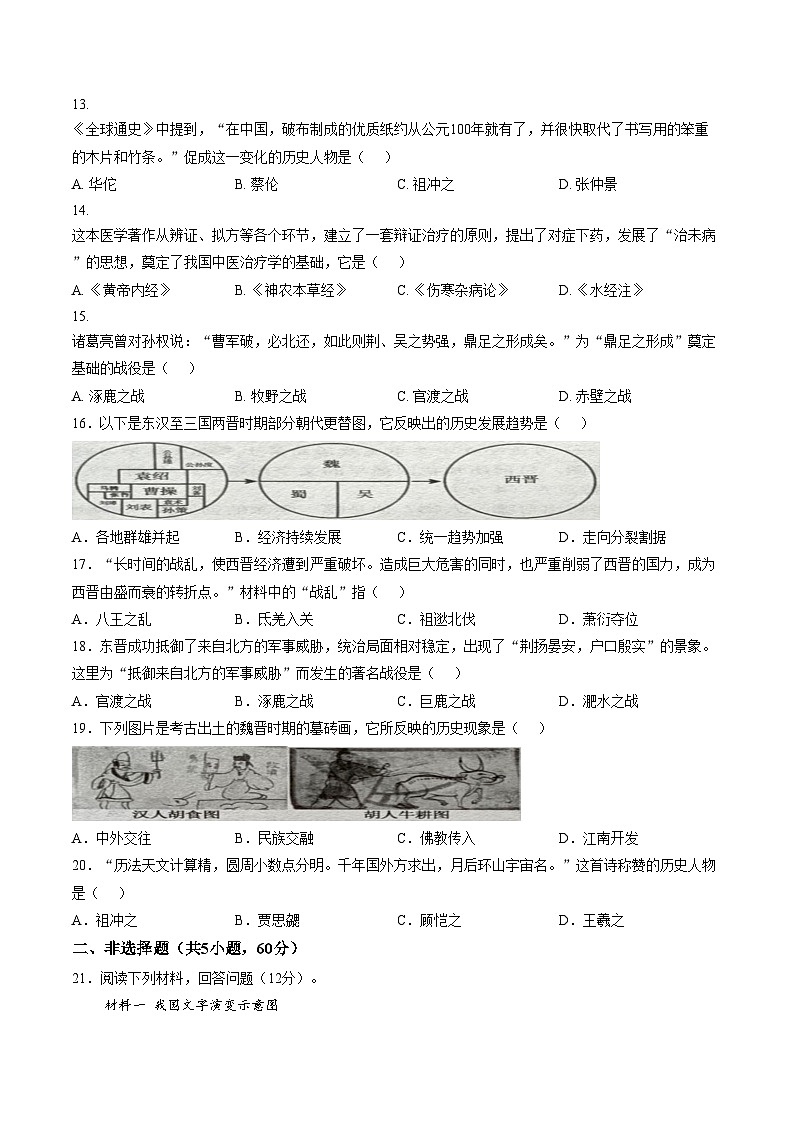 13.
《全球通史》中提到，“在中国，破布制成的优质纸约从公元100年就有了，并很快取代了书写用的笨重
的木片和竹条。”促成这一变化的历史人物是（    ）
A. 华佗 B. 蔡伦 C. 祖冲之 D. 张仲景
14.
这本医学著作从辨证、拟方等各个环节，建立了一套辩证治疗的原则，提出了对症下药，发展了“治未病
”的思想，奠定了我国中医治疗学的基础，它是（    ）
A.《黄帝内经》 B.《神农本草经》 C.《伤寒杂病论》 D.《水经注》
15.
诸葛亮曾对孙权说：“曹军破，必北还，如此则荆、吴之势强，鼎足之形成矣。”为“鼎足之形成”奠定
基础的战役是（    ）
A. 涿鹿之战 B. 牧野之战 C. 官渡之战 D. 赤壁之战
16．以下是东汉至三国两晋时期部分朝代更替图，它反映出的历史发展趋势是（    ）
公孙度
袁绍
曹操
刘表
袁术
孙策
魏
蜀 吴
西晋
A．各地群雄并起 B．经济持续发展 C．统一趋势加强 D．走向分裂割据
17．“长时间的战乱，使西晋经济遭到严重破坏。造成巨大危害的同时，也严重削弱了西晋的国力，成为
西晋由盛而衰的转折点。”材料中的“战乱”指（    ）
A．八王之乱 B．氐羌入关 C．祖逖北伐 D．萧衍夺位
18．东晋成功抵御了来自北方的军事威胁，统治局面相对稳定，出现了“荆扬晏安，户口殷实”的景象。
这里为“抵御来自北方的军事威胁”而发生的著名战役是（    ）
A．官渡之战 B．涿鹿之战 C．巨鹿之战 D．淝水之战
19．下列图片是考古出土的魏晋时期的墓砖画，它所反映的历史现象是（    ）
汉人胡食图 胡人牛耕图
A．中外交往 B．民族交融 C．佛教传入 D．江南开发
20．“历法天文计算精，圆周小数点分明。千年国外方求出，月后环山宇宙名。”这首诗称赞的历史人物
是（    ）
A．祖冲之 B．贾思勰 C．顾恺之 D．王羲之
二、非选择题（共5小题，60分）
21．阅读下列材料，回答问题（12分）。
材料一 我国文字演变示意图